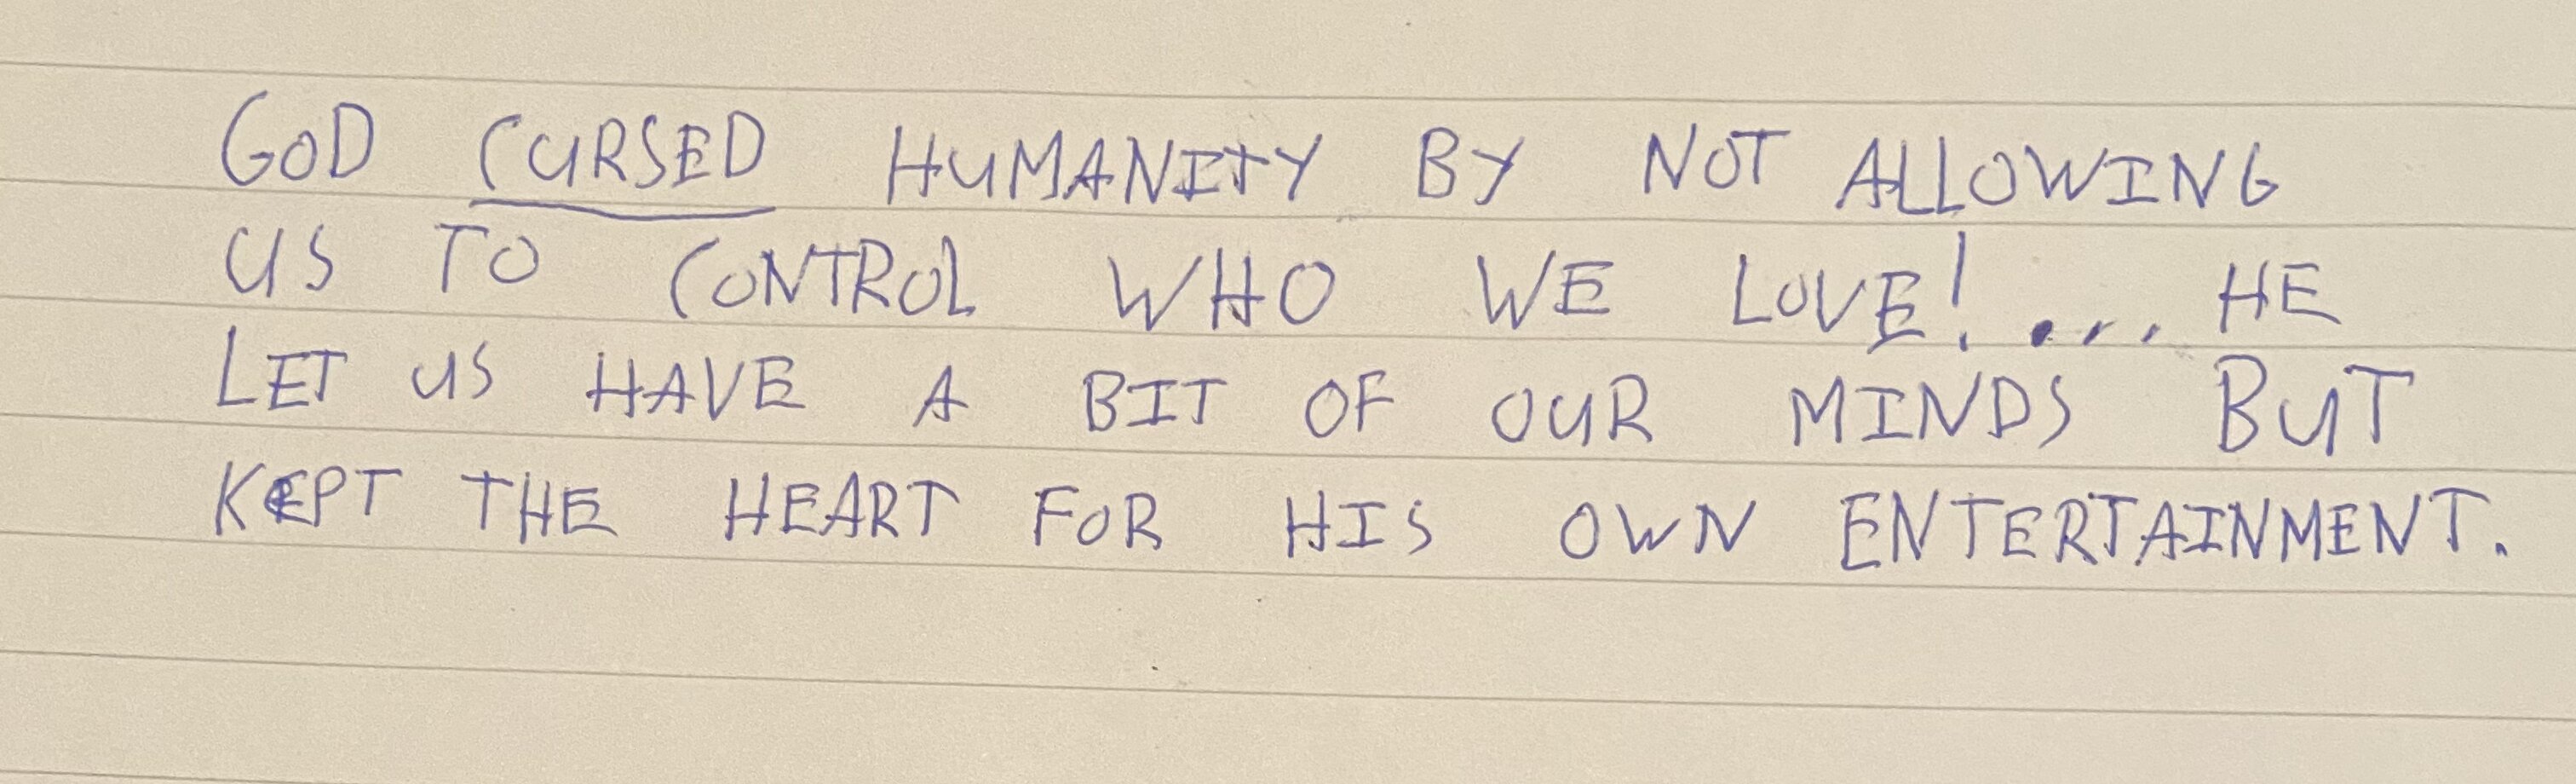 GOD CURSED HUMANITY BY NOT ALLOWING
US TO CONTROL WHO WE LOVE!.... HE
LET US HAVE A BIT OF OUR MINDS BUT
KEPT THE HEART FOR HIS OWN ENTERTAINMENT.